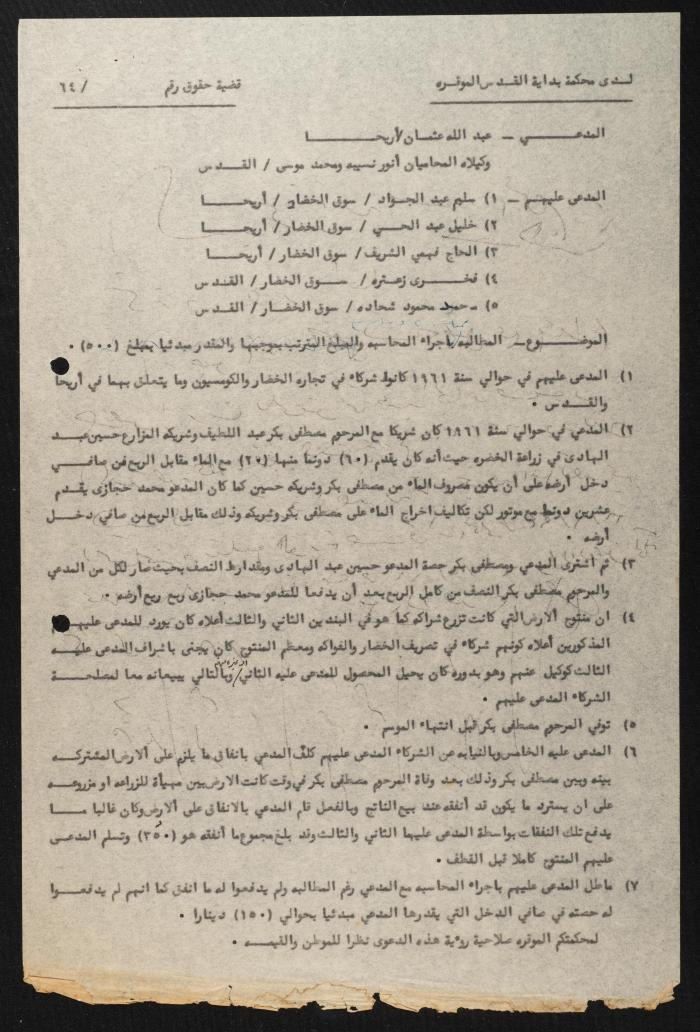 لـدى محكمة بداية القدس الموقره قضية حقوق رقم / ٦٤
المدعـــي ــ عبد الله عثمان/أريحــــا
وكيلاه المحاميان أنور نسيبه ومحمد موسى / القـدس
المدعى عليهـم ــ ١) سليم عبد الجـواد / سوق الخضار / أريحــا
٢) خليل عبد الحــي / سوق الخضار / أريحــا
٣) الحاج فهمي الشريف/ سوق الخضار / أريحــا
٤) فخــرى زعتره / ســوق الخضار / القـدس
٥) محمد محمود شحاده / سوق الخضار / القـدس
الموضــوع ــ المطالبه باجراء المحاسبه والمبلغ المترتب بموجبها والمقدر مبدئيا بمبلغ (٥٠٠) ٠
١) المدعى عليهم في حوالي سنة ١٩٦١ كانوا شركاء في تجاره الخضار والكومسيون وما يتعلق بهما في أريحا
والقـدس ٠
٢) المدعي في حوالي سنة ١٩٦١ كان شريكا مع المرحوم مصطفى بكر عبد اللطيف وشريكه المزارع حسين عبد
الهادى في زراعة الخضره حيث أنه كان يقدم (٦٠) دونما منها (٢٠) مع الماء مقابل الربع من صافــي
دخل أرضه على أن يكون مصروف الماء من مصطفى بكر وشريكه حسين كما كان المدعو محمد حجازى يقدم
عشرين دونما مع موتور لكن تكاليف اخراج الماء على مصطفى بكر وشريكه وذلك مقابل الربع من صافي دخل
أرضه ٠
٣) ثم اشترى المدعي ومصطفى بكر حصة المدعو حسين عبد الهادى ومقدارها النصف بحيث صار لكل من المدعي
والمرحوم مصطفى بكر النصف من كامل الربع بعد أن يدفعا للمدعو محمد حجازى ربع ربع أرضه ٠
٤) ان منتوج ألارض التي كانت تزرع شراكه كما هو في البندين الثاني والثالث أعلاه كان يورد للمدعى عليهـم
المذكورين أعلاه كونهم شركاء في تصريف الخضار والفواكه ومعظم المنتوج كان يجنى باشراف المدعى عليــه
الثالث كوكيل عنهم وهو بدوره كان يحيل المحصول للمدعى عليه الثاني/وبالتالي يبيعانه معا لمصلحــة
الشركاء المدعى عليهم ٠
٥) توفي المرحوم مصطفى بكر قبل انتهاء الموسم ٠
٦) المدعى عليه الخامس وبالنيابه عن الشركاء المدعى عليهم كلف المدعي بانفاق ما يلزم على ألارض المشتركـه
بينه وبين مصطفى بكر وذلك بعد وفاة المرحوم مصطفى بكر في وقت كانت الارض بين مهيأة للزراعه او مزروعـه
على ان يسترد ما يكون قد أنفقه عند بيع الناتج وبالفعل قام المدعي بالانفاق على ألارض وكان غالبا مـا
يدفع تلك النفقات بواسطة المدعى عليهما الثاني والثالث وقد بلغ مجموع ما أنفقه هو (٣٥٠) وتسلم المدعـى
عليهم المنتوج كاملا قبل القطف ٠
٧) ماطل المدعى عليهم باجراء المحاسبه مع المدعي رغم المطالبه ولم يدفعوا له ما انفق كما انهم لم يدفعــوا
له حصته في صافي الدخل التي يقدرها المدعي مبدئيا بحوالي (١٥٠) دينارا ٠
لمحكمتكم الموقره صلاحية رؤية هذه الدعوى نظرا للموطن والقيمــه ٠